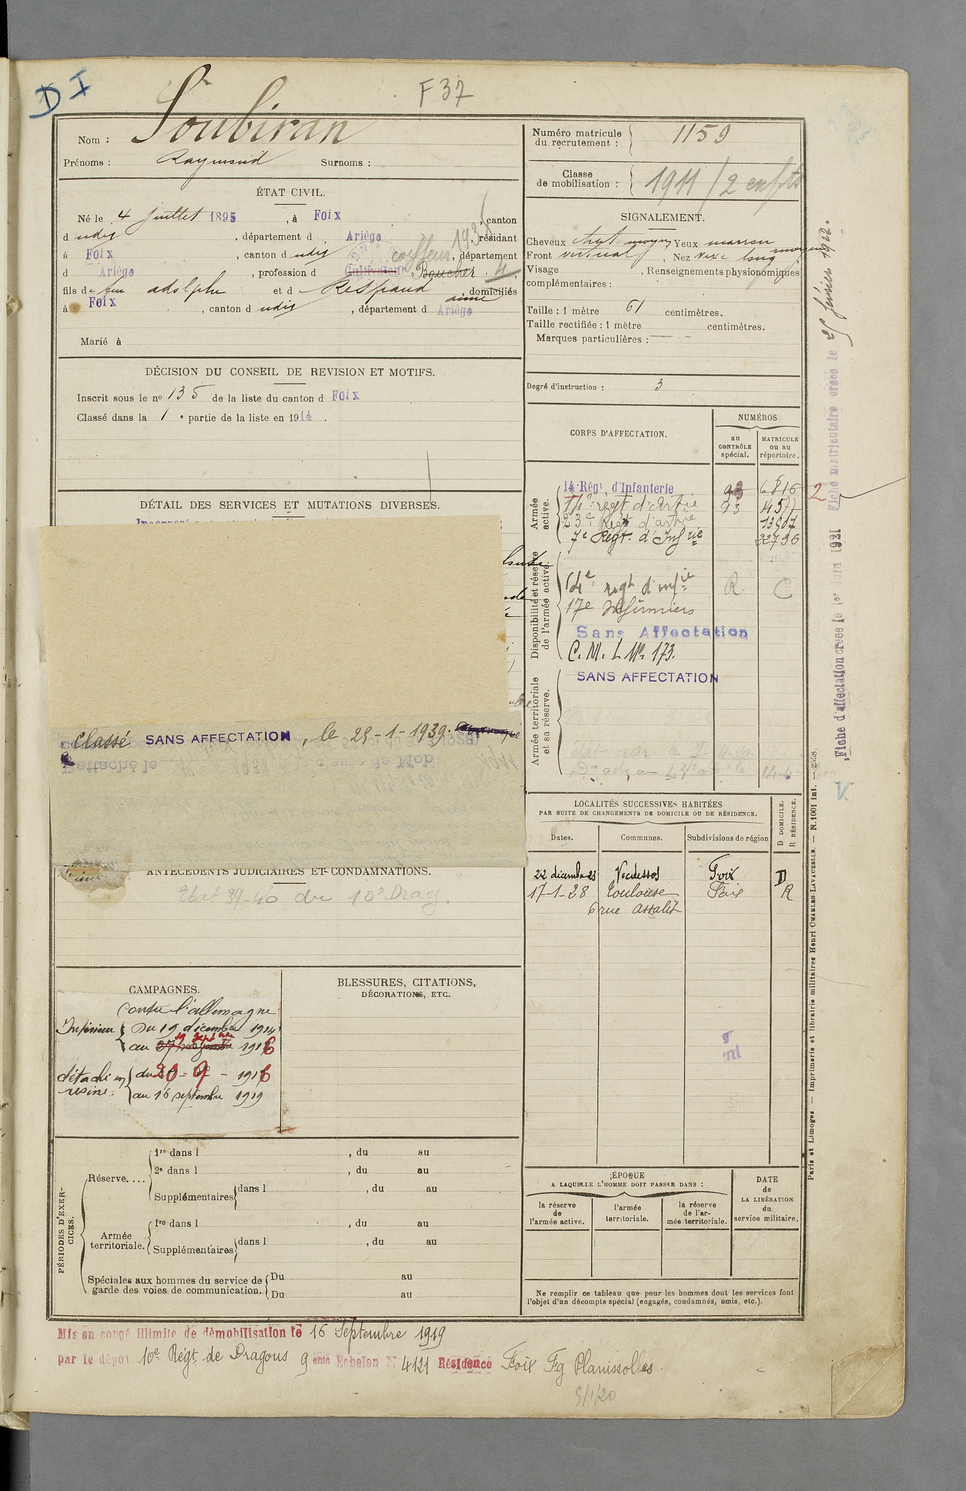 D I
F 37
Nom : Soubiran
Prénoms : Raymond Surnoms :
ÉTAT CIVIL.
Né le 4 juillet 1895, à Foix, canton
d udit, département d Ariège, résidant
à Foix, canton d udit coiffeur 1938, département
d Ariège, profession d Cultivateur Boucher. 4
fils de feu adolphe et d Respaud anne, domiciliés
à Foix, canton d udit, département d Ariège
Marié à
DÉCISION DU CONSEIL DE REVISION ET MOTIFS.
Inscrit sous le nº 135 de la liste du canton d Foix
Classé dans la 1 e partie de la liste en 1914.
DÉTAIL DES SERVICES ET MUTATIONS DIVERSES.
Classé SANS AFFECTATION, le 25-1-1939.
Rattaché le classe de Mob
ANTÉCÉDENTS JUDICIAIRES ET CONDAMNATIONS.
Etat 39-40 du 10e Drag.
CAMPAGNES.
Contre l'allemagne
Intérieur { Du 19 décembre 1914
au 19 septembre 1916
détaché en { du 20 - 9 - 1916
usine. } au 16 septembre 1919
BLESSURES, CITATIONS,
DÉCORATIONS, ETC.
PÉRIODES D'EXERCICES.
Réserve.... { 1re dans l , du au
2e dans l , du au
Supplémentaires { dans l , du au
Armée territoriale. { 1re dans l , du au
Supplémentaires { dans l , du au
Spéciales aux hommes du service de { Du au
garde des voies de communication. { Du au
Mis en congé illimité de démobilisation le 16 Septembre 1919
par le dépôt 10e Régt de Dragons 9 ème Echelon N 4121 Résidence Foix Fg Planissolles.
5/1/20
Numéro matricule
du recrutement : { 1159
Classe
de mobilisation : { 1911 / 2 enfts
SIGNALEMENT.
Cheveux chat moyen Yeux marron
Front vertical, Nez rect long moyen
Visage , Renseignements physionomiques
complémentaires :
Taille : 1 mètre 61 centimètres.
Taille rectifiée : 1 mètre centimètres.
Marques particulières :
Degré d'instruction : 3
CORPS D'AFFECTATION.
NUMÉROS
au
CONTRÔLE
spécial.
MATRICULE
ou au
répertoire.
Armée active.
14e Régt. d'Infanterie 6816
14e régt d'artie 93
23e Régt d'artie 13907
7e Régt. d'Infie 22796
Disponibilité et réserve de l'armée active.
14e regt d'infie R. C
17e Infirmiers
Sans Affectation
C. M. I. No 173.
Armée territoriale et sa réserve.
SANS AFFECTATION
LOCALITÉS SUCCESSIVES HABITÉES
PAR SUITE DE CHANGEMENTS DE DOMICILE OU DE RÉSIDENCE.
Dates. Communes. Subdivisions de région
D DOMICILE.
R RÉSIDENCE.
22 décembre 23 Vicdessos Foix D
17-1-28 Toulouse Foix R
6 rue Assalit
ÉPOQUE
A LAQUELLE L'HOMME DOIT PASSER DANS :
la réserve
de
l'armée active.
l'armée
territoriale.
la réserve
de l'ar-
mée territoriale.
DATE
de
LA LIBÉRATION
du
service militaire.
Ne remplir ce tableau que pour les hommes dont les services font
l'objet d'un décompte spécial (engagés, condamnés, omis, etc.).
Paris et Limoges. — Imprimerie et librairie militaires Henri CHARLES-LAVAUZELLE. — N. 1001 Int. — 258.
Fiche d'affectation créée le 1er Juin 1921
Fiche matriculaire créée le 25 février 1922.
2
V.